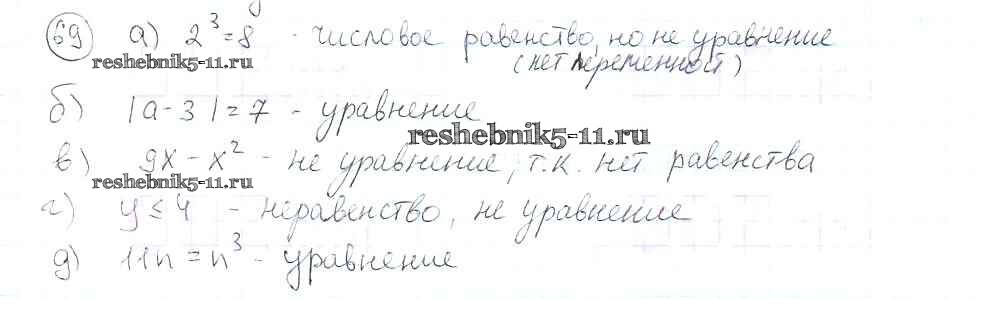 69 а) 2³ = 8 - числовое равенство, но не уравнение
reshebnik5-11.ru (нет переменной)
б) |a - 3| = 7 - уравнение
reshebnik5-11.ru
в) 9x - x² - не уравнение, т.к. нет равенства
reshebnik5-11.ru
г) y ≤ 4 - неравенство, не уравнение
д) 11n = n³ - уравнение